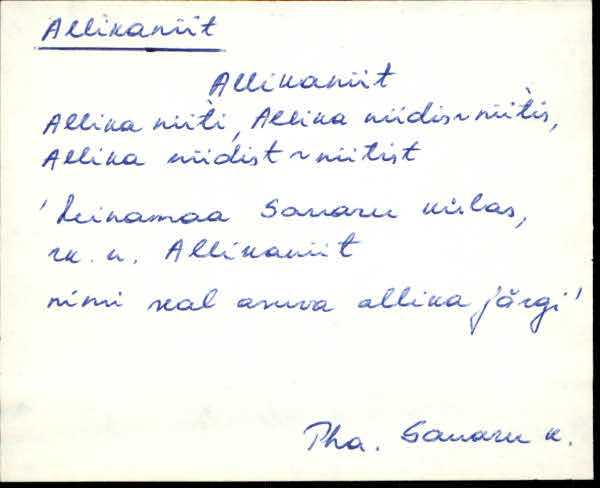 Allikaniit
Allikaniit
Allika niiti, Allika niidis ~ niitis,
Allika niidist ~ niitist
'heinamaa Sauaru külas,
rk. n. Allikaniit
nimi seal asuva allika järgi'
Pha. Sauaru k.